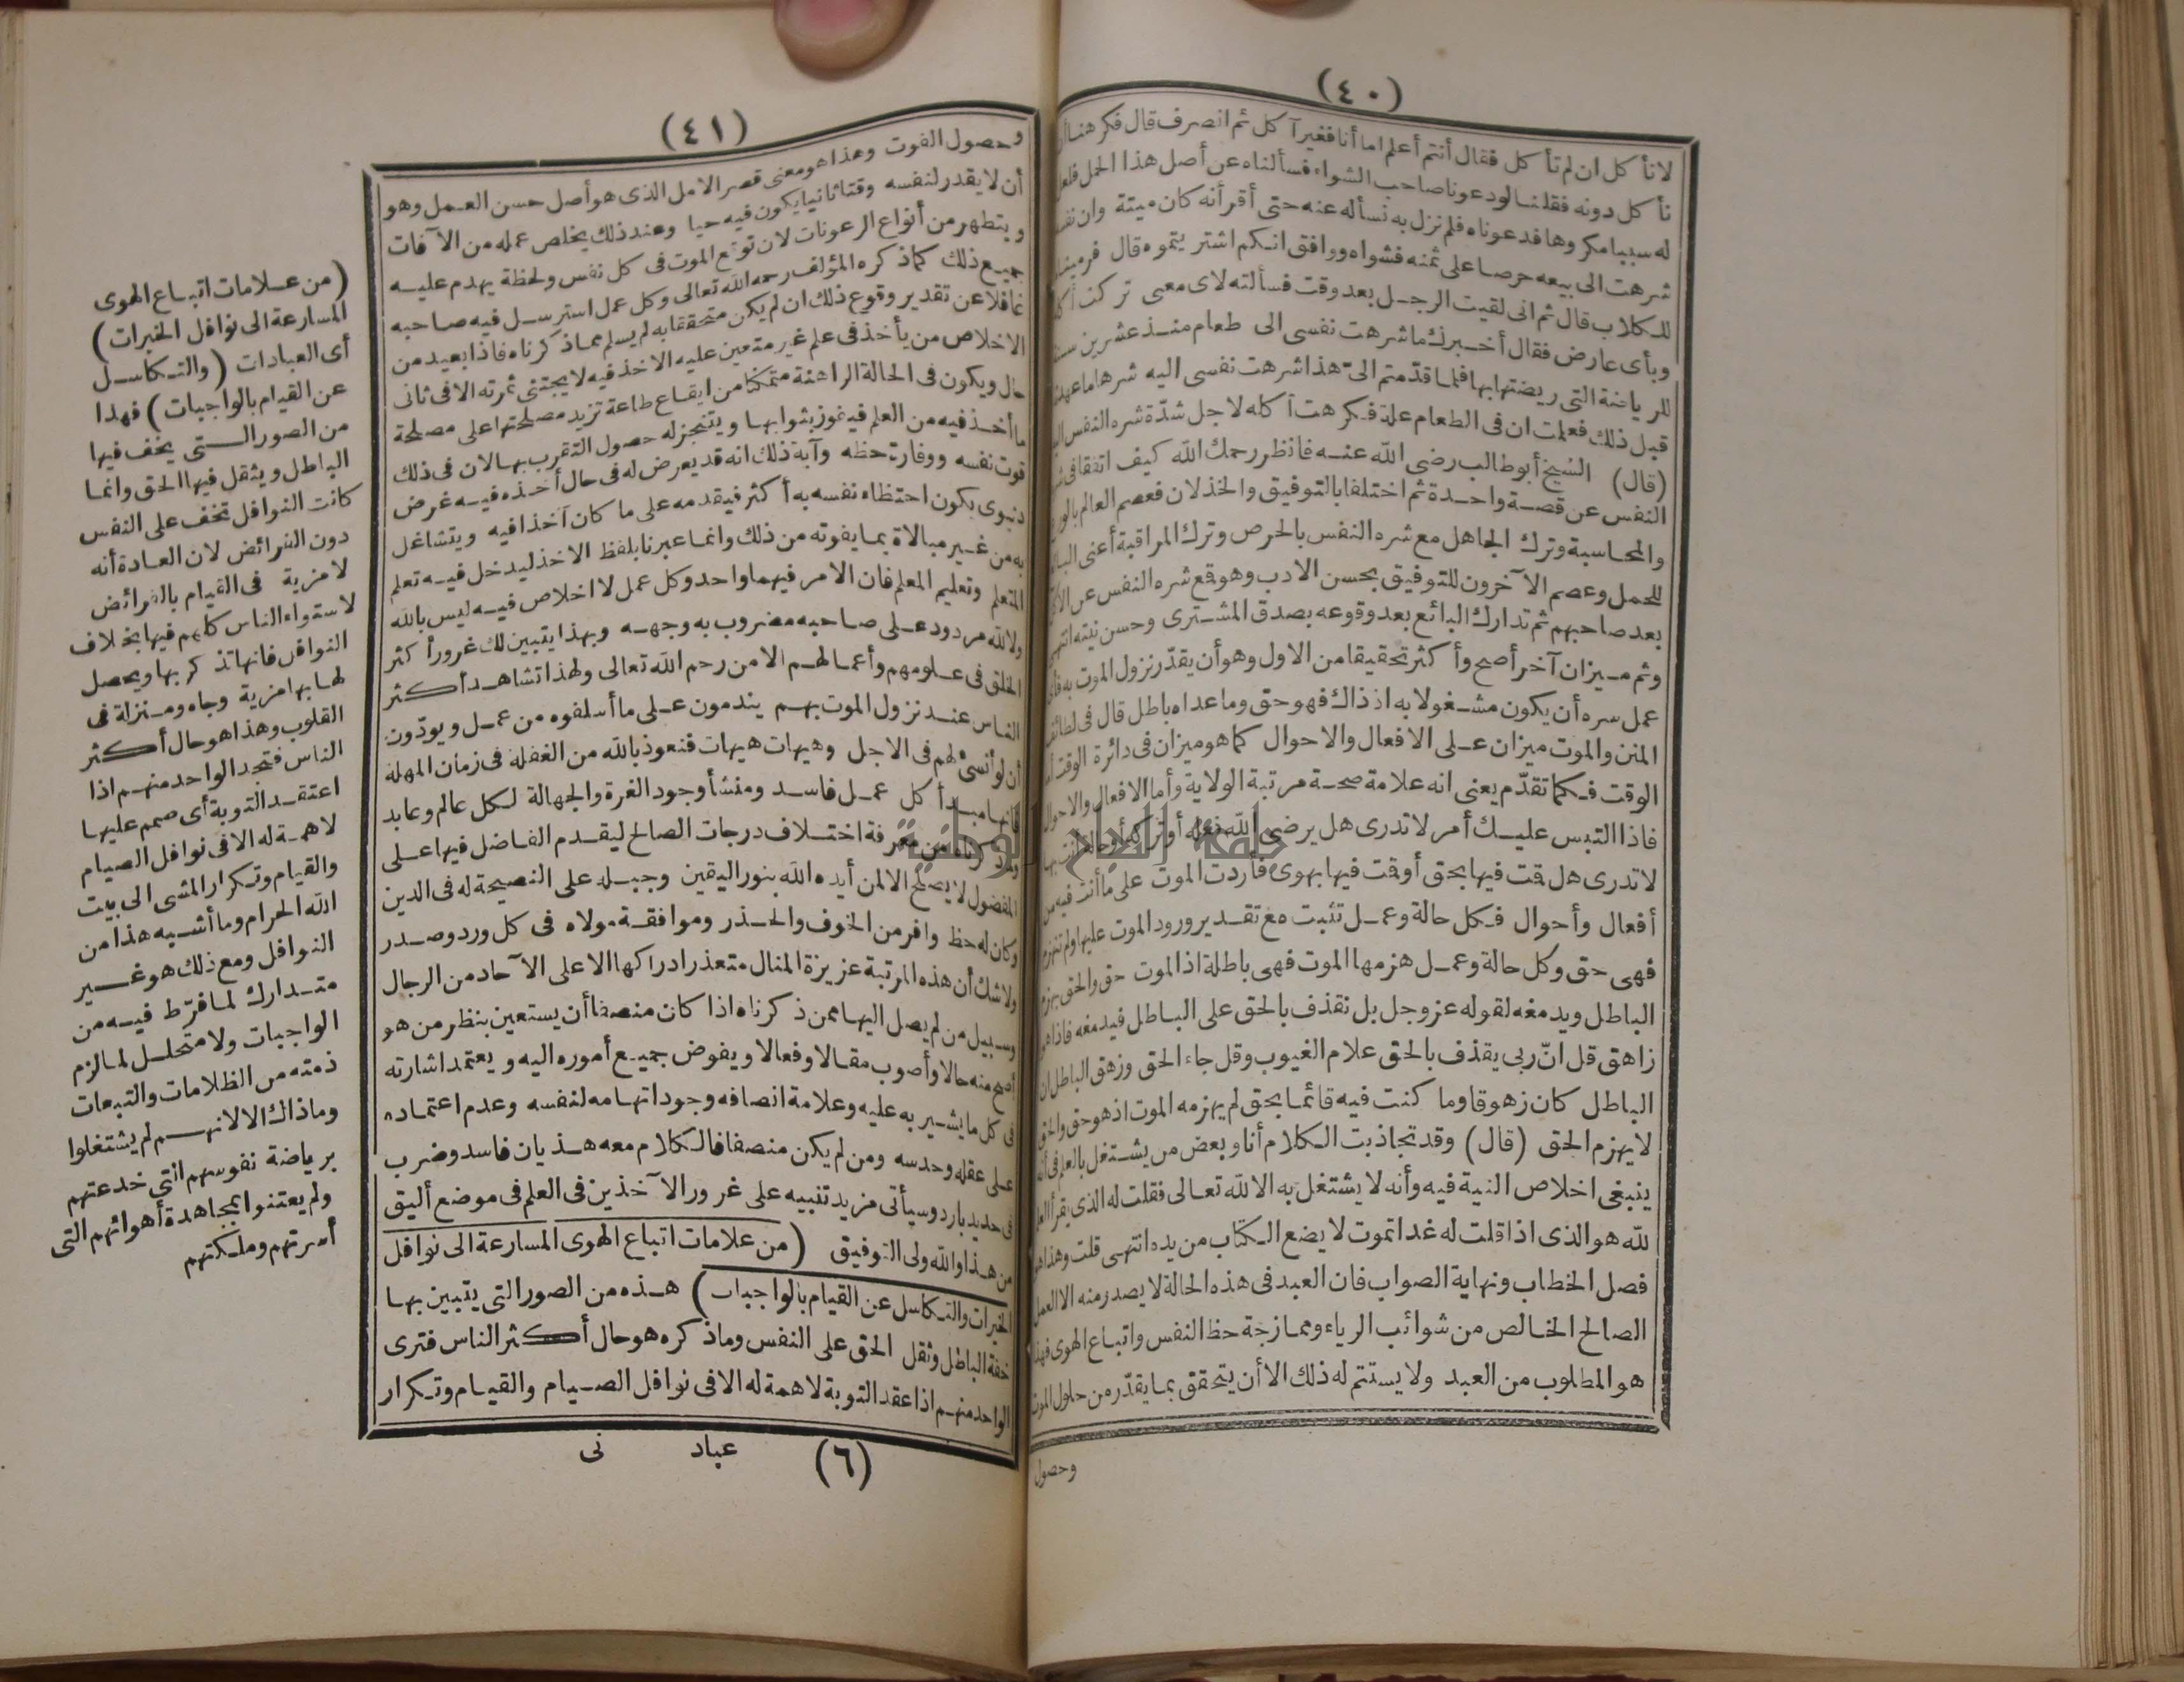 (٤٠)
لانأ كل ان لم تأ كل فقال أنتم أعلم اما أنا فغير آ كل ثم انصرف قال فكرهنا أن
نأ كل دونه فقلنا لو دعونا صاحب الشواء فسألناه عن أصل هذا الحمل فلعل
له سببا مكروها فدعوناه فلم نزل به نسأله عنه حتى أقر أنه كان ميتة وان نفسه
شرهت الى بيعه حرصا على ثمنه فشواه ووافق انكم اشتريتموه قال فرميناه
للكلاب قال ثم انى لقيت الرجل بعد وقت فسألته لاى معنى تركت أكله
وبأى عارض فقال أخبرك ما شرهت نفسى الى طعام منذ عشرين سنة
للرياضة التى ريضتها بها فلما قدّمتم الىّ هذا شرهت نفسى اليه شرها ما عهدته
قبل ذلك فعلمت ان فى الطعام علة فكرهت أ كله لاجل شدّة شره النفس اليه
(قال) الشيخ أبو طالب رضى الله عنه فانظر رحمك الله كيف اتفقا فى شره
النفس عن قصة واحدة ثم اختلفا بالتوفيق والخذلان فعصم العالم بالورع
والمحاسبة وترك الجاهل مع شره النفس بالحرص وترك المراقبة أعنى البائع
للحمل وعصم الآخرون للتوفيق بحسن الادب وهو قمع شره النفس عن الاكل
بعد صاحبهم ثم تدارك البائع بعد وقوعه بصدق المشترى وحسن نيته انتهى
وثم ميزان آخر أصح وأ كثر تحقيقا من الاول وهو أن يقدّر نزول الموت به فأى
عمل سره أن يكون مشغولا به اذ ذاك فهو حق وما عداه باطل قال فى لطائف
المنن والموت ميزان على الافعال والاحوال كما هو ميزان فى دائرة الوقت أما
الوقت فكما تقدّم يعنى انه علامة صحة مرتبة الولاية وأما الافعال والاحوال
فاذا التبس عليك أمر لا تدرى هل يرضى الله فعله أو تركه أو حالة أنت بها
لا تدرى هل قمت فيها بحق أو قمت فيها بهوى فأردت الموت على ما أنت فيه من
أفعال وأحوال فكل حالة وعمل تثبت مع تقدير ورود الموت عليها ولم تنهزم
فهى حق وكل حالة وعمل هزمها الموت فهى باطلة اذ الموت حق والحق يهزم
الباطل ويدمغه لقوله عز وجل بل نقذف بالحق على الباطل فيدمغه فاذا هو
زاهق قل انّ ربى يقذف بالحق علام الغيوب وقل جاء الحق وزهق الباطل ان
الباطل كان زهوقا وما كنت فيه قائما بحق لم يهزمه الموت اذ هو حق والحق
لا يهزم الحق (قال) وقد تجاذبت الكلام أنا وبعض من يشتغل بالعلم فى أنه
ينبغى اخلاص النية فيه وأنه لا يشتغل به الا لله تعالى فقلت له الذى يقرأ العلم
لله هو الذى اذا قلت له غدا تموت لا يضع الكتاب من يده انتهى قلت وهذا هو
فصل الخطاب ونهاية الصواب فان العبد فى هذه الحالة لا يصدر منه الا العمل
الصالح الخالص من شوائب الرياء وممازجة حظ النفس واتباع الهوى فهذا
هو المطلوب من العبد ولا يستتم له ذلك الا أن يتحقق بما يقدّره من حلول الموت
وحصول
(٤١)
وحصول الفوت وهذا هو معنى قصر الامل الذى هو أصل حسن العمل وهو
أن لا يقدر لنفسه وقتا ثانيا يكون فيه حيا وعند ذلك يخلص عمله من الآفات
ويتطهر من أنواع الرعونات لان توقع الموت فى كل نفس ولحظة يهدم عليه
جميع ذلك كما ذكره المؤلف رحمه الله تعالى وكل عمل استرسل فيه صاحبه
غافلا عن تقدير وقوع ذلك ان لم يكن متحققا به لم يسلم مما ذكرناه فاذا بعيد من
الاخلاص من يأخذ فى علم غير متعين عليه الاخذ فيه لا يجتنى ثمرته الا فى ثانى
حال ويكون فى الحالة الراهنة متمكنا من ايقاع طاعة تزيد مصلحتها على مصلحة
ما أخذ فيه من العلم فيفوز بثوابها ويتنجز له حصول التقرب بها لان فى ذلك
فوت نفسه ووفارة حظه وآية ذلك انه قد يعرض له فى حال أخذه فيه غرض
دنيوى يكون احتظاء نفسه به أ كثر فيقدمه على ما كان آخذا فيه ويتشاغل
به من غير مبالاة بما يفوته من ذلك وانما عبرنا بلفظ الاخذ ليدخل فيه تعلم
المتعلم وتعليم المعلم فان الامر فيهما واحد وكل عمل لا اخلاص فيه ليس بالله
ولا لله مردود على صاحبه مضروب به وجهه وبهذا يتبين لك غرور أ كثر
الخلق فى علومهم وأعمالهم الا من رحم الله تعالى ولهذا تشاهد أكثر
الناس عند نزول الموت بهم يندمون على ما أسلفوه من عمل ويودّون
أن لو أنسئ لهم فى الاجل وهيهات هيهات فنعوذ بالله من الغفلة فى زمان المهلة
فانها مبدأ كل عمل فاسد ومنشأ وجود الغرة والجهالة لكل عالم وعابد
وما ذكرناه من معرفة اختلاف درجات الصالح ليقدم الفاضل فيها على
المفضول لا يصلح الا لمن أيده الله بنور اليقين وجبله على النصيحة له فى الدين
وكان له حظ وافر من الخوف والحذر وموافقة مولاه فى كل ورد وصدر
ولا شك أن هذه المرتبة عزيزة المنال متعذر ادراكها الا على الآحاد من الرجال
وسبيل من لم يصل اليها ممن ذكرناه اذا كان منصفا أن يستعين بنظر من هو
أصح منه حالا وأصوب مقالا وفعالا ويفوض جميع أموره اليه ويعتمد اشارته
فى كل ما يشير به عليه وعلامة انصافه وجود اتهامه لنفسه وعدم اعتماده
على عقله وحدسه ومن لم يكن منصفا فالكلام معه هذيان فاسد وضرب
فى حديد بارد وسيأتى مزيد تنبيه على غرور الآخذين فى العلم فى موضع أليق
من هذا والله ولى التوفيق (من علامات اتباع الهوى المسارعة الى نوافل
الخيرات والتكاسل عن القيام بالواجبات) هذه من الصور التى يتبين بها
خفة الباطل وثقل الحق على النفس وما ذكره هو حال أكثر الناس فترى
الواحد منهم اذا عقد التوبة لا همة له الا فى نوافل الصيام والقيام وتكرار
(٦) عباد نى
(من علامات اتباع الهوى
المسارعة الى نوافل الخيرات)
أى العبادات (والتكاسل
عن القيام بالواجبات) فهذا
من الصور التى يخف فيها
الباطل ويثقل فيها الحق وانما
كانت النوافل تخف على النفس
دون الفرائض لان العادة أنه
لا مزية فى القيام بالفرائض
لاستواء الناس كلهم فيها بخلاف
النوافل فانها تذكر بها ويحصل
لها بها مزية وجاه ومنزلة فى
القلوب وهذا هو حال أكثر
الناس فتجد الواحد منهم اذا
اعتقد التوبة أى صمم عليها
لا همة له الا فى نوافل الصيام
والقيام وتكرار المشى الى بيت
الله الحرام وما أشبه هذا من
النوافل ومع ذلك هو غير
متدارك لما فرّط فيه من
الواجبات ولا متحلل لما لزم
ذمته من الظلامات والتبعات
وما ذاك الا لانهم لم يشتغلوا
برياضة نفوسهم التى خدعتهم
ولم يعتنوا بمجاهدة أهوائهم التى
أسرتهم وملكتهم